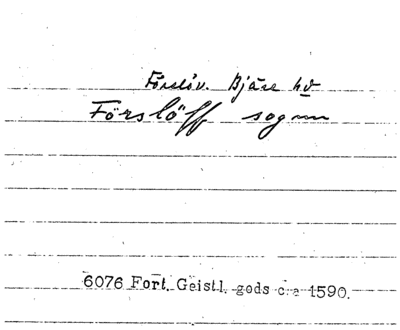 Förslöv. Bjäre hd
Förslöff sognn
6076 Fort. Geistl. gods c:a 1590.